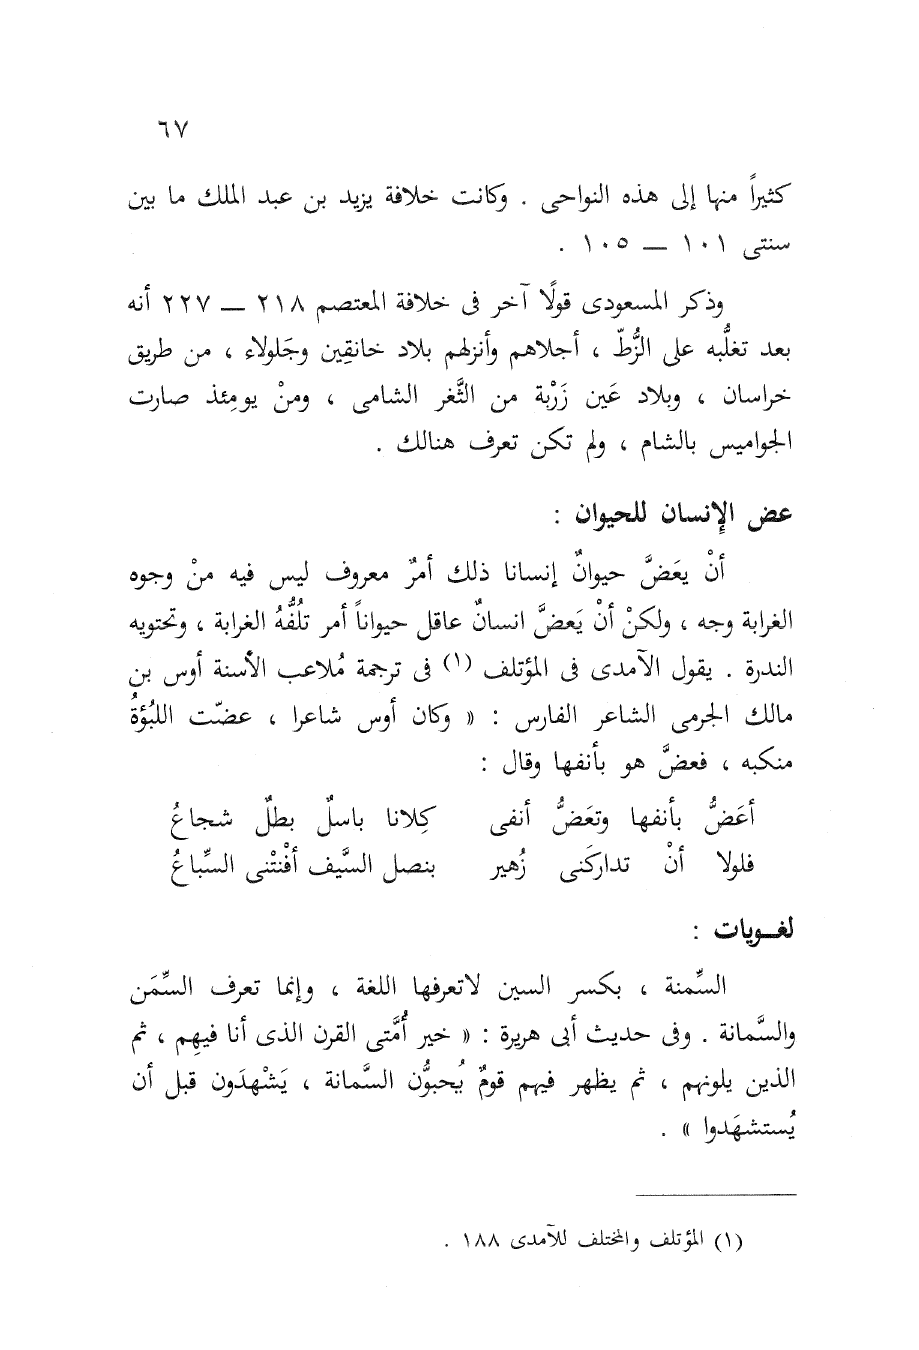 ٦٧
كثيراً منها إلى هذه النواحى . وكانت خلافة يزيد بن عبد الملك ما بين
سنتى ١٠١ — ١٠٥ .
وذكر المسعودى قولًا آخر فى خلافة المعتصم ٢١٨ — ٢٢٧ أنه
بعد تغلُّبه على الزُّطّ ، أجلاهم وأنزلهم بلاد خانقِين وجَلولاء ، من طريق
خراسان ، وبلاد عَين زَرْبة من الثَّغر الشامى ، ومنْ يومِئذ صارت
الجواميس بالشام ، ولم تكن تعرف هنالك .
عض الإنسان للحيوان :
أنْ يعَضَّ حيوانٌ إنسانا ذلك أمرٌ معروف ليس فيه منْ وجوه
الغرابة وجه ، ولكنْ أنْ يَعضَّ انسانٌ عاقل حيواناً أمر تلُفُّهُ الغرابة ، وتحتويه
الندرة . يقول الآمدى فى المؤتلف (١) فى ترجمة مُلاعب الأسنة أوس بن
مالك الجرمى الشاعر الفارس : « وكان أوس شاعرا ، عضّت اللبُؤةُ
منكبه ، فعضَّ هو بأنفها وقال :
أعَضُّ بأنفها وتعَضُّ أنفى كِلانا باسلٌ بطلٌ شجاعُ
فلولا أنْ تداركَنى زُهير بنصل السَّيف أفْنتْنى السِّباعُ
لغـويات :
السِّمنة ، بكسر السين لاتعرفها اللغة ، وإنما تعرف السِّمَن
والسَّمانة . وفى حديث أبى هريرة : « خير أُمَّتى القرن الذى أنا فيهِم ، ثم
الذين يلونهم ، ثم يظهر فيهم قومٌ يُحبوُّن السَّمانة ، يَشْهدَون قبل أن
يُستشهَدوا » .
(١) المؤتلف والمختلف للآمدى ١٨٨ .